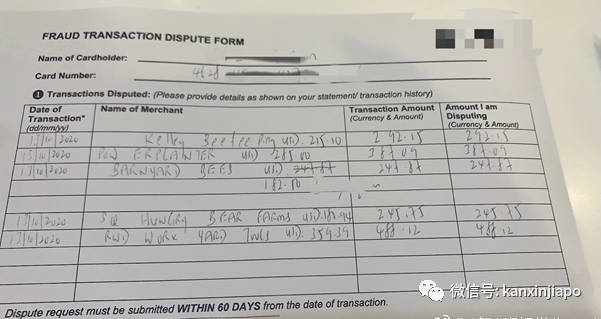 FRAUD TRANSACTION DISPUTE FORM
Name of Cardholder:
Card Number: 4628
1 Transactions Disputed: (Please provide details as shown on your statement/ transaction history)
Date of Transaction* (dd/mm/yy) Name of Merchant Transaction Amount (Currency & Amount) Amount I am Disputing (Currency & Amount)
13/10/2020 Kelley Beekeeping USD. 215.10 292.15 292.15
13/10/2020 USD 285.00 387.09 387.09
13/10/2020 BARNYARD BEES USD. 247.87 247.87
182.50
13/10/2020 SQ HUNGRY BEAR FARMS USD. 245.75 245.75
13/10/2020 RWD WORK YARD USD. 359.39 488.12 488.12
Dispute request must be submitted WITHIN 60 DAYS from the date of transaction.
微信号: kanxinjiapo